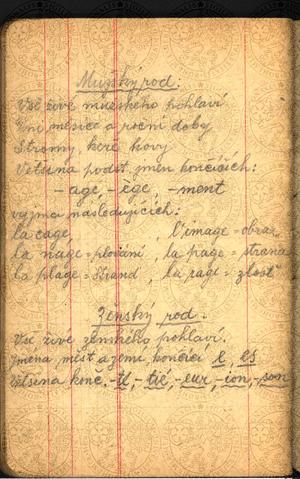 Mužský rod:
Vše živé mužského pohlaví
Dni měsíce a roční doby
Stromy, keře kovy
Většina podst. jmen končících:
- age, - ège, - ment
vyjma následujících:
la cage, l'image = obraz
la nage = plování, la page = strana
la plage = strand, la rage = zlost
Ženský rod:
Vše živé ženského pohlaví.
Jména měst a zemí, končící e, es
Většina konč. -té, -tié, -eur, -ion, -son